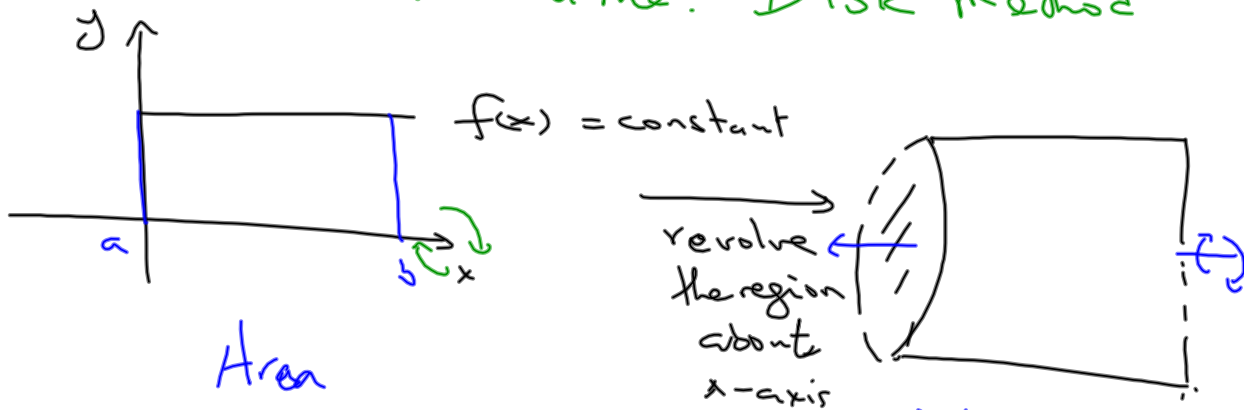 Disk Method
y
f(x) = constant
a
b
x
Area
revolve
the region
about
x-axis